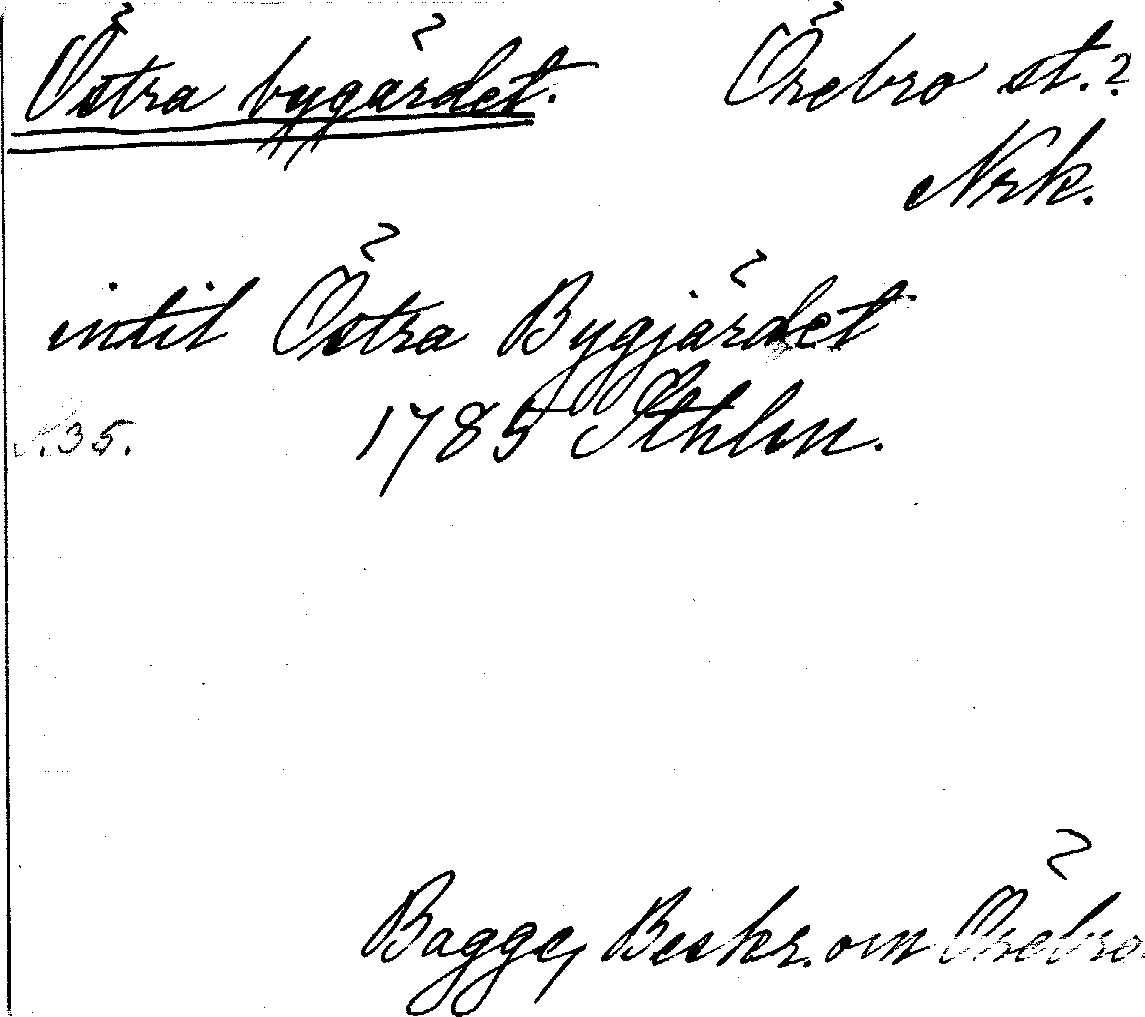 Östra bygärdet. Örebro st.?
Nrk.
intil Östra Bygjärdet
s.35. 1785 Sthlm.
Bagge, Beskr. om Örebro